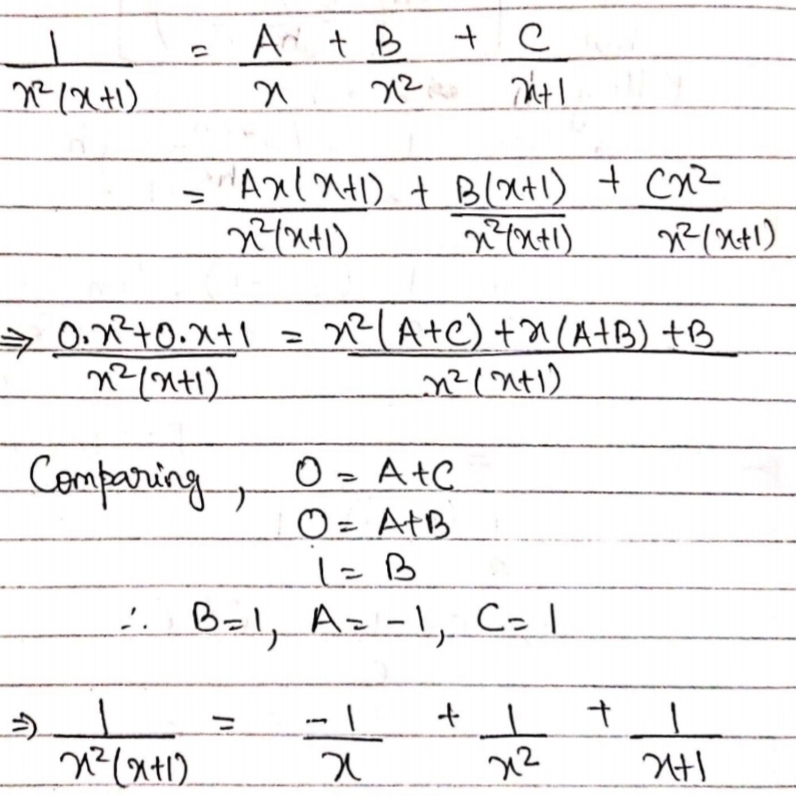 1/(x²(x+1)) = A/x + B/x² + C/(x+1)
= Ax(x+1)/(x²(x+1)) + B(x+1)/(x²(x+1)) + Cx²/(x²(x+1))
⇒ (0.x²+0.x+1)/(x²(x+1)) = (x²(A+C)+x(A+B)+B)/(x²(x+1))
Comparing, 0 = A+C
0 = A+B
1 = B
∴ B=1, A=-1, C=1
⇒ 1/(x²(x+1)) = -1/x + 1/x² + 1/(x+1)